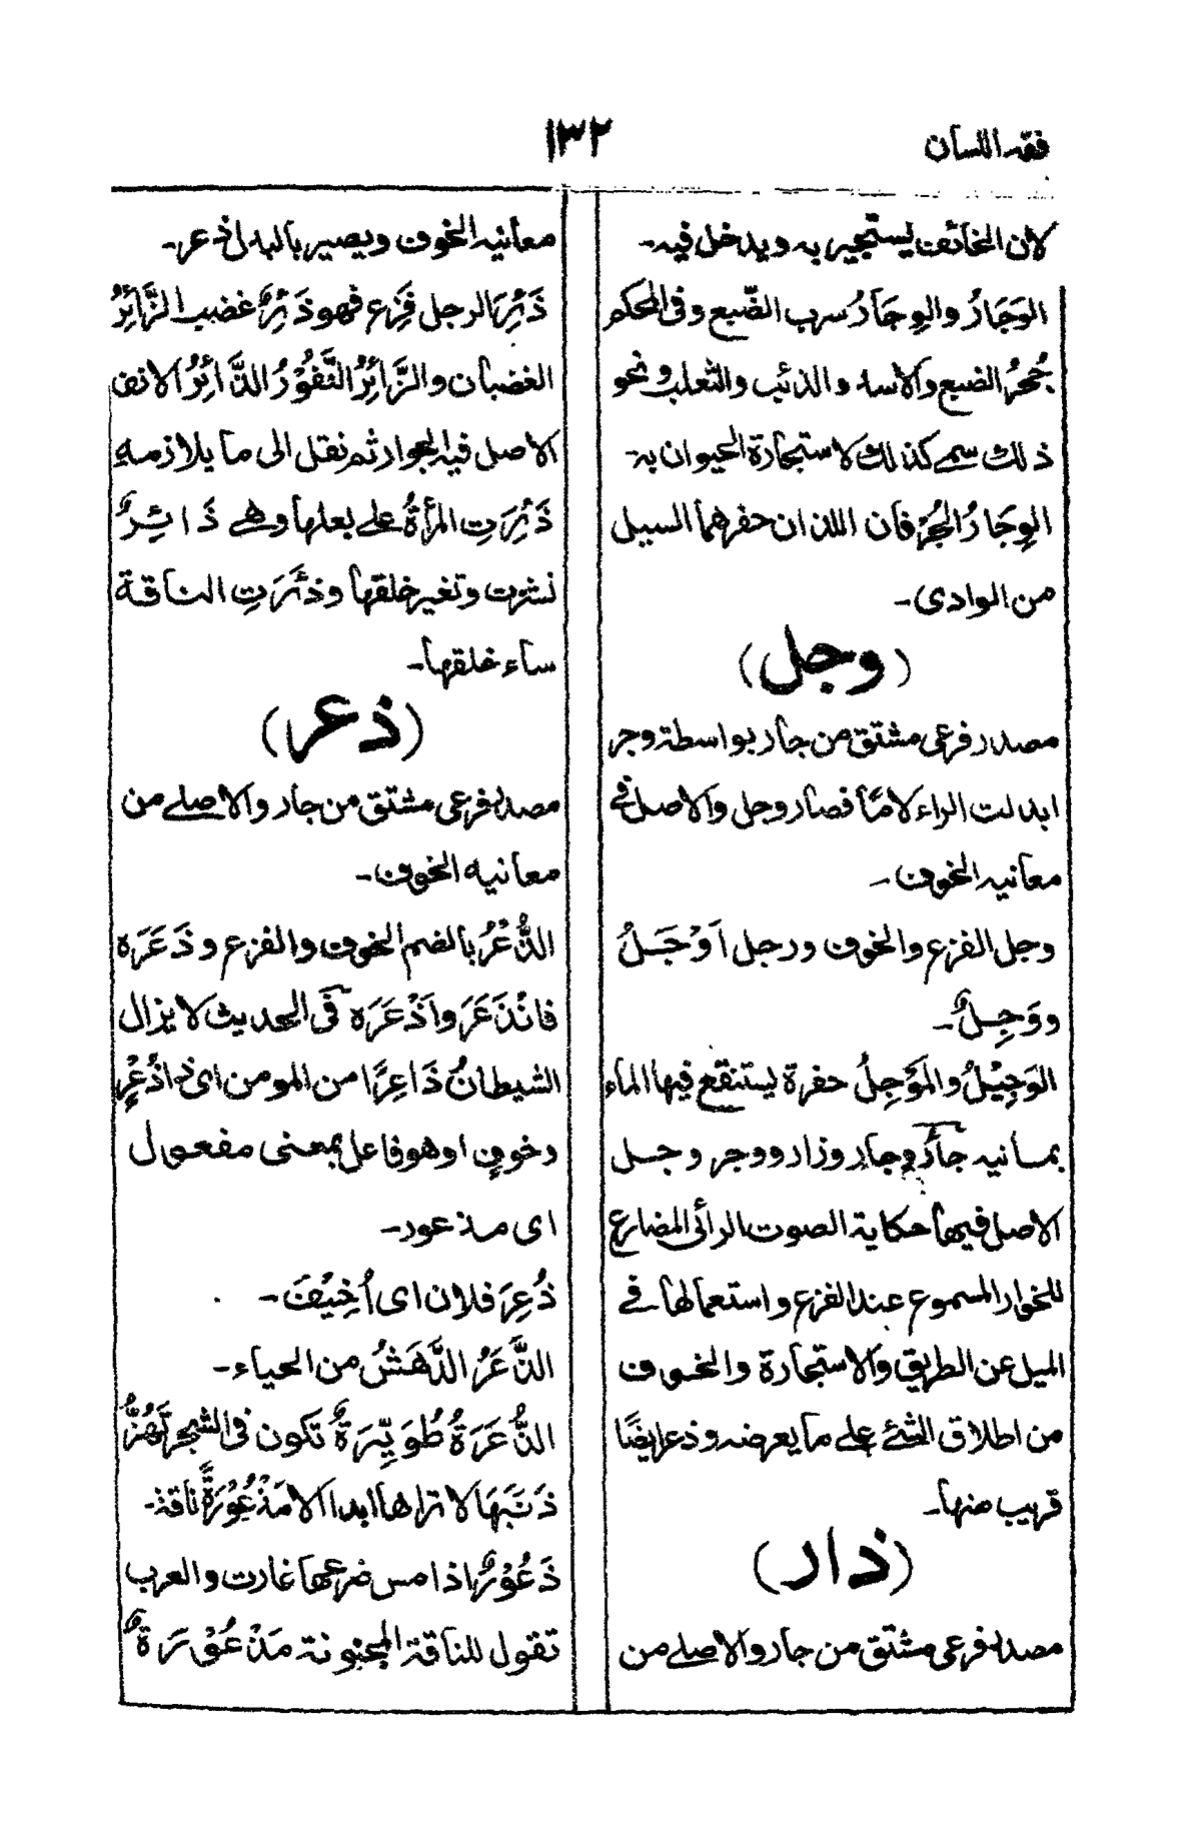 فقه اللسان
١٣٢
لان الخائف يستجير به ويدخل فيه۔
الوَجَارُ والوِجَارُ سرب الضّبع وفى المحكم
جُحرُ الضبع والاسد والذئب والثعلب ونحو
ذلك سمى كذلك لاستجارة الحيوان به۔
الوِجَارُ الجُرْفان اللذان حفرهما السيل
من الوادى۔
(وجل)
مصدر فرعى مشتق من جار بواسطة وجر
ابدلت الراء لامًا فصار وجل والاصل فى
معانيه الخوف۔
وجل الفزع والخوف ورجل اَوْجَلُ
ووَجِلٌ۔
الوَجِيْلُ والمَوْجِلُ حفرة يستنقع فيها الماء
بمانيه جأرُ وجار وزار ووجر وجل
الاصل فيها حكاية الصوت الرائى المضارع
للخوار المسموع عند الفزع واستعمالها فى
الميل عن الطريق والاستجارة والخوف
من اطلاق الشئ على ما يعرضه وذعر ايضًا
قريب منها۔
(ذار)
مصدر فرعى مشتق من جار والاصلى من
معانيه الخوف ويصير بالبدل ذعر۔
ذَئِرَ الرجل فَزِع فهو ذَئِرٌ غضب الزَّائِرُ
الغضبان والزَّائِرُ النَّفُوْرُ الذَّائِرُ الانف
الاصل فيه الجوار ثم نقل الى ما يلازمه
ذَئِرَتِ المرأةُ على بعلها وهى ذَائِرٌ
نشزت وتغير خلقها وذئَرَتِ الناقة
ساء خلقها۔
(ذعر)
مصدر فرعى مشتق من جار والاصلى من
معانيه الخوف۔
الذُّعْرُ بالضم الخوف والفزع وذَعَرَه
فانْذَعَرَ واَذْعَرَه فى الحديث لا يزال
الشيطانُ ذَاعِرًا من المومن اى ذا ذُعْرٍ
وخوفٍ اوهو فاعل بمعنى مفعول
اى مذعور۔
ذُعِرَ فلان اى اُخِيْفَ۔
الذَّعَرُ الدَّهَشُ من الحياء۔
الذُّعَرَةُ طُوَيِّرَةٌ تكون فى الشجر تَهُزُّ
ذَنَبَهَا لا تراها ابدا الا مَذْعُوْرَةً ناقة۔
ذَعُوْرٌ اذا مس ضرعها غارت والعرب
تقول للناقة المجنونة مَذْعُوْرَةٌ